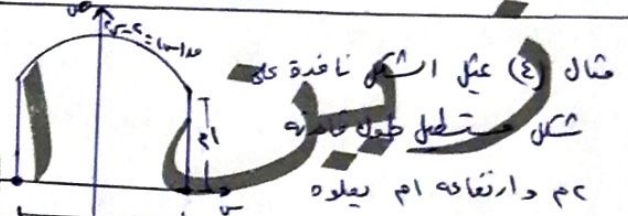 مثال (٤) يمثل الشكل نافذة على
شكل مستطيل طول قاعدته
٢م وارتفاعه ١م يعلوه
ص
١م
س